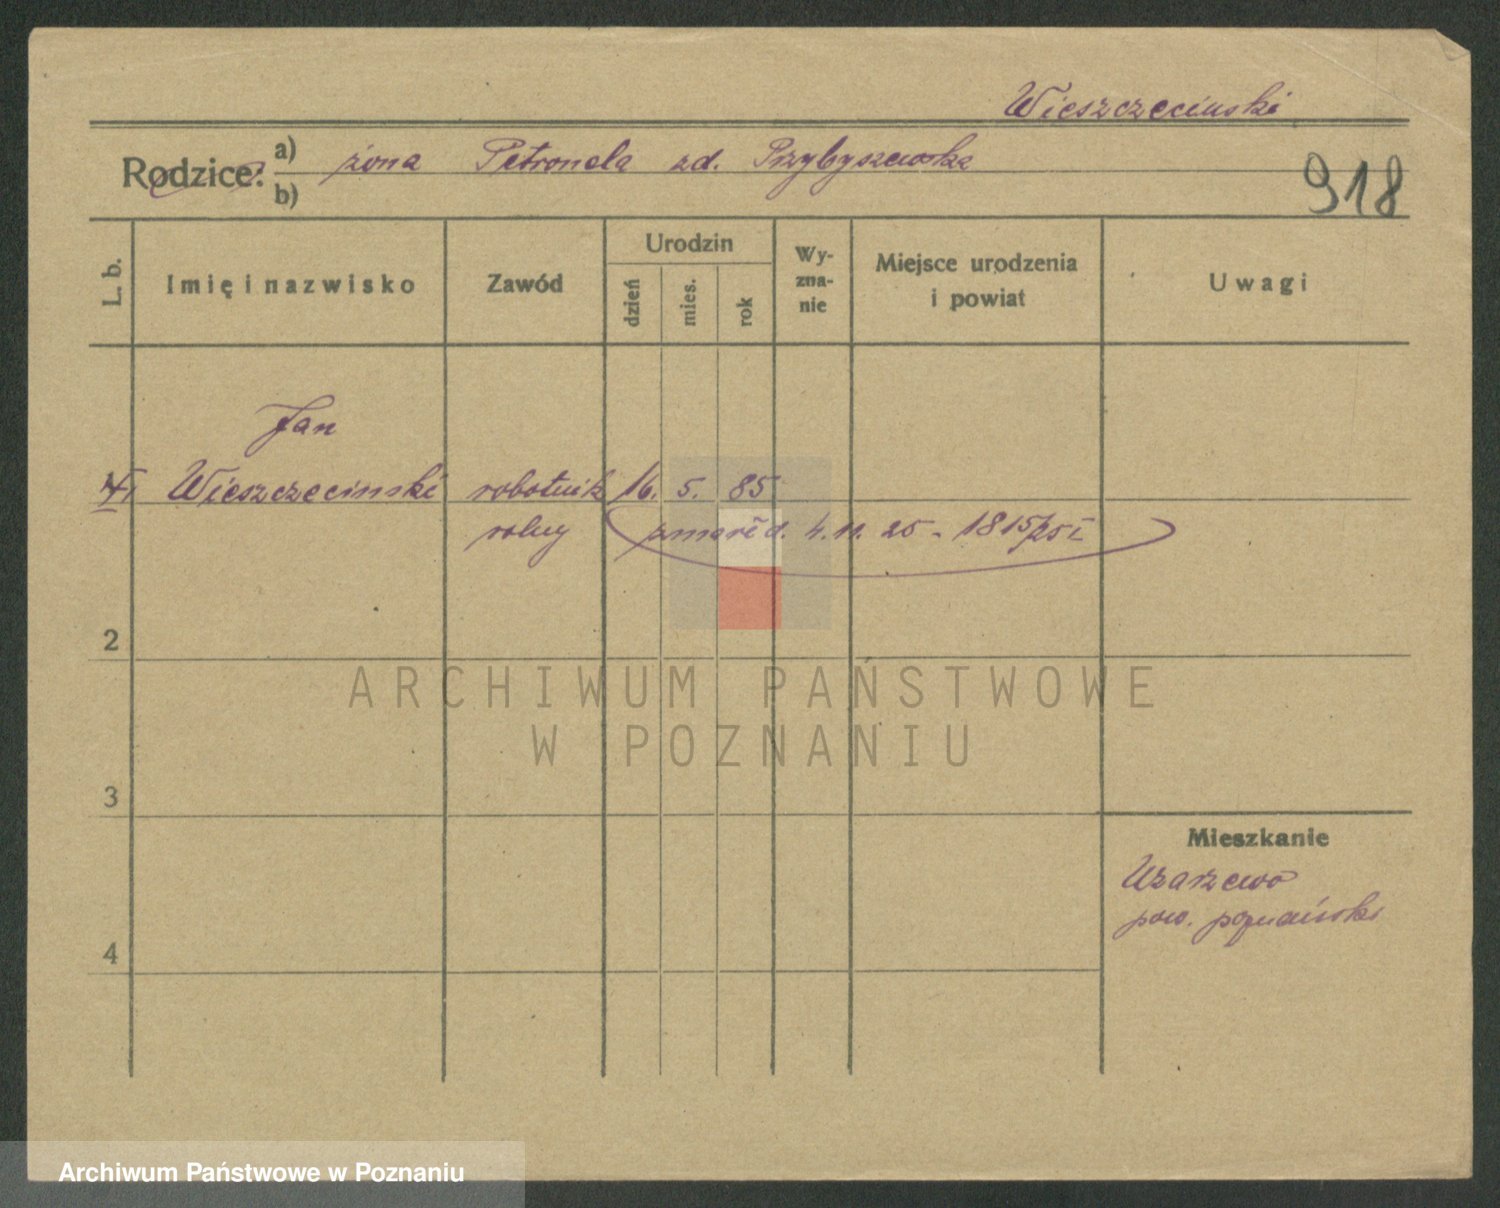 Wieszczeciński
Rodzice: a) żona Petronela zd. Przybyszewska
b)
918
L. b.
Imię i nazwisko
Zawód
Urodzin
dzień
mies.
rok
Wy-
zna-
nie
Miejsce urodzenia
i powiat
Uwagi
Jan
Wieszczeciński robotnik 16. 5. 85
rolny zmarł d. 4. 11. 25 - 1815/25 I
2
3
4
Mieszkanie
Uzarzewo
pow. poznański
ARCHIWUM PAŃSTWOWE
W POZNANIU
Archiwum Państwowe w Poznaniu